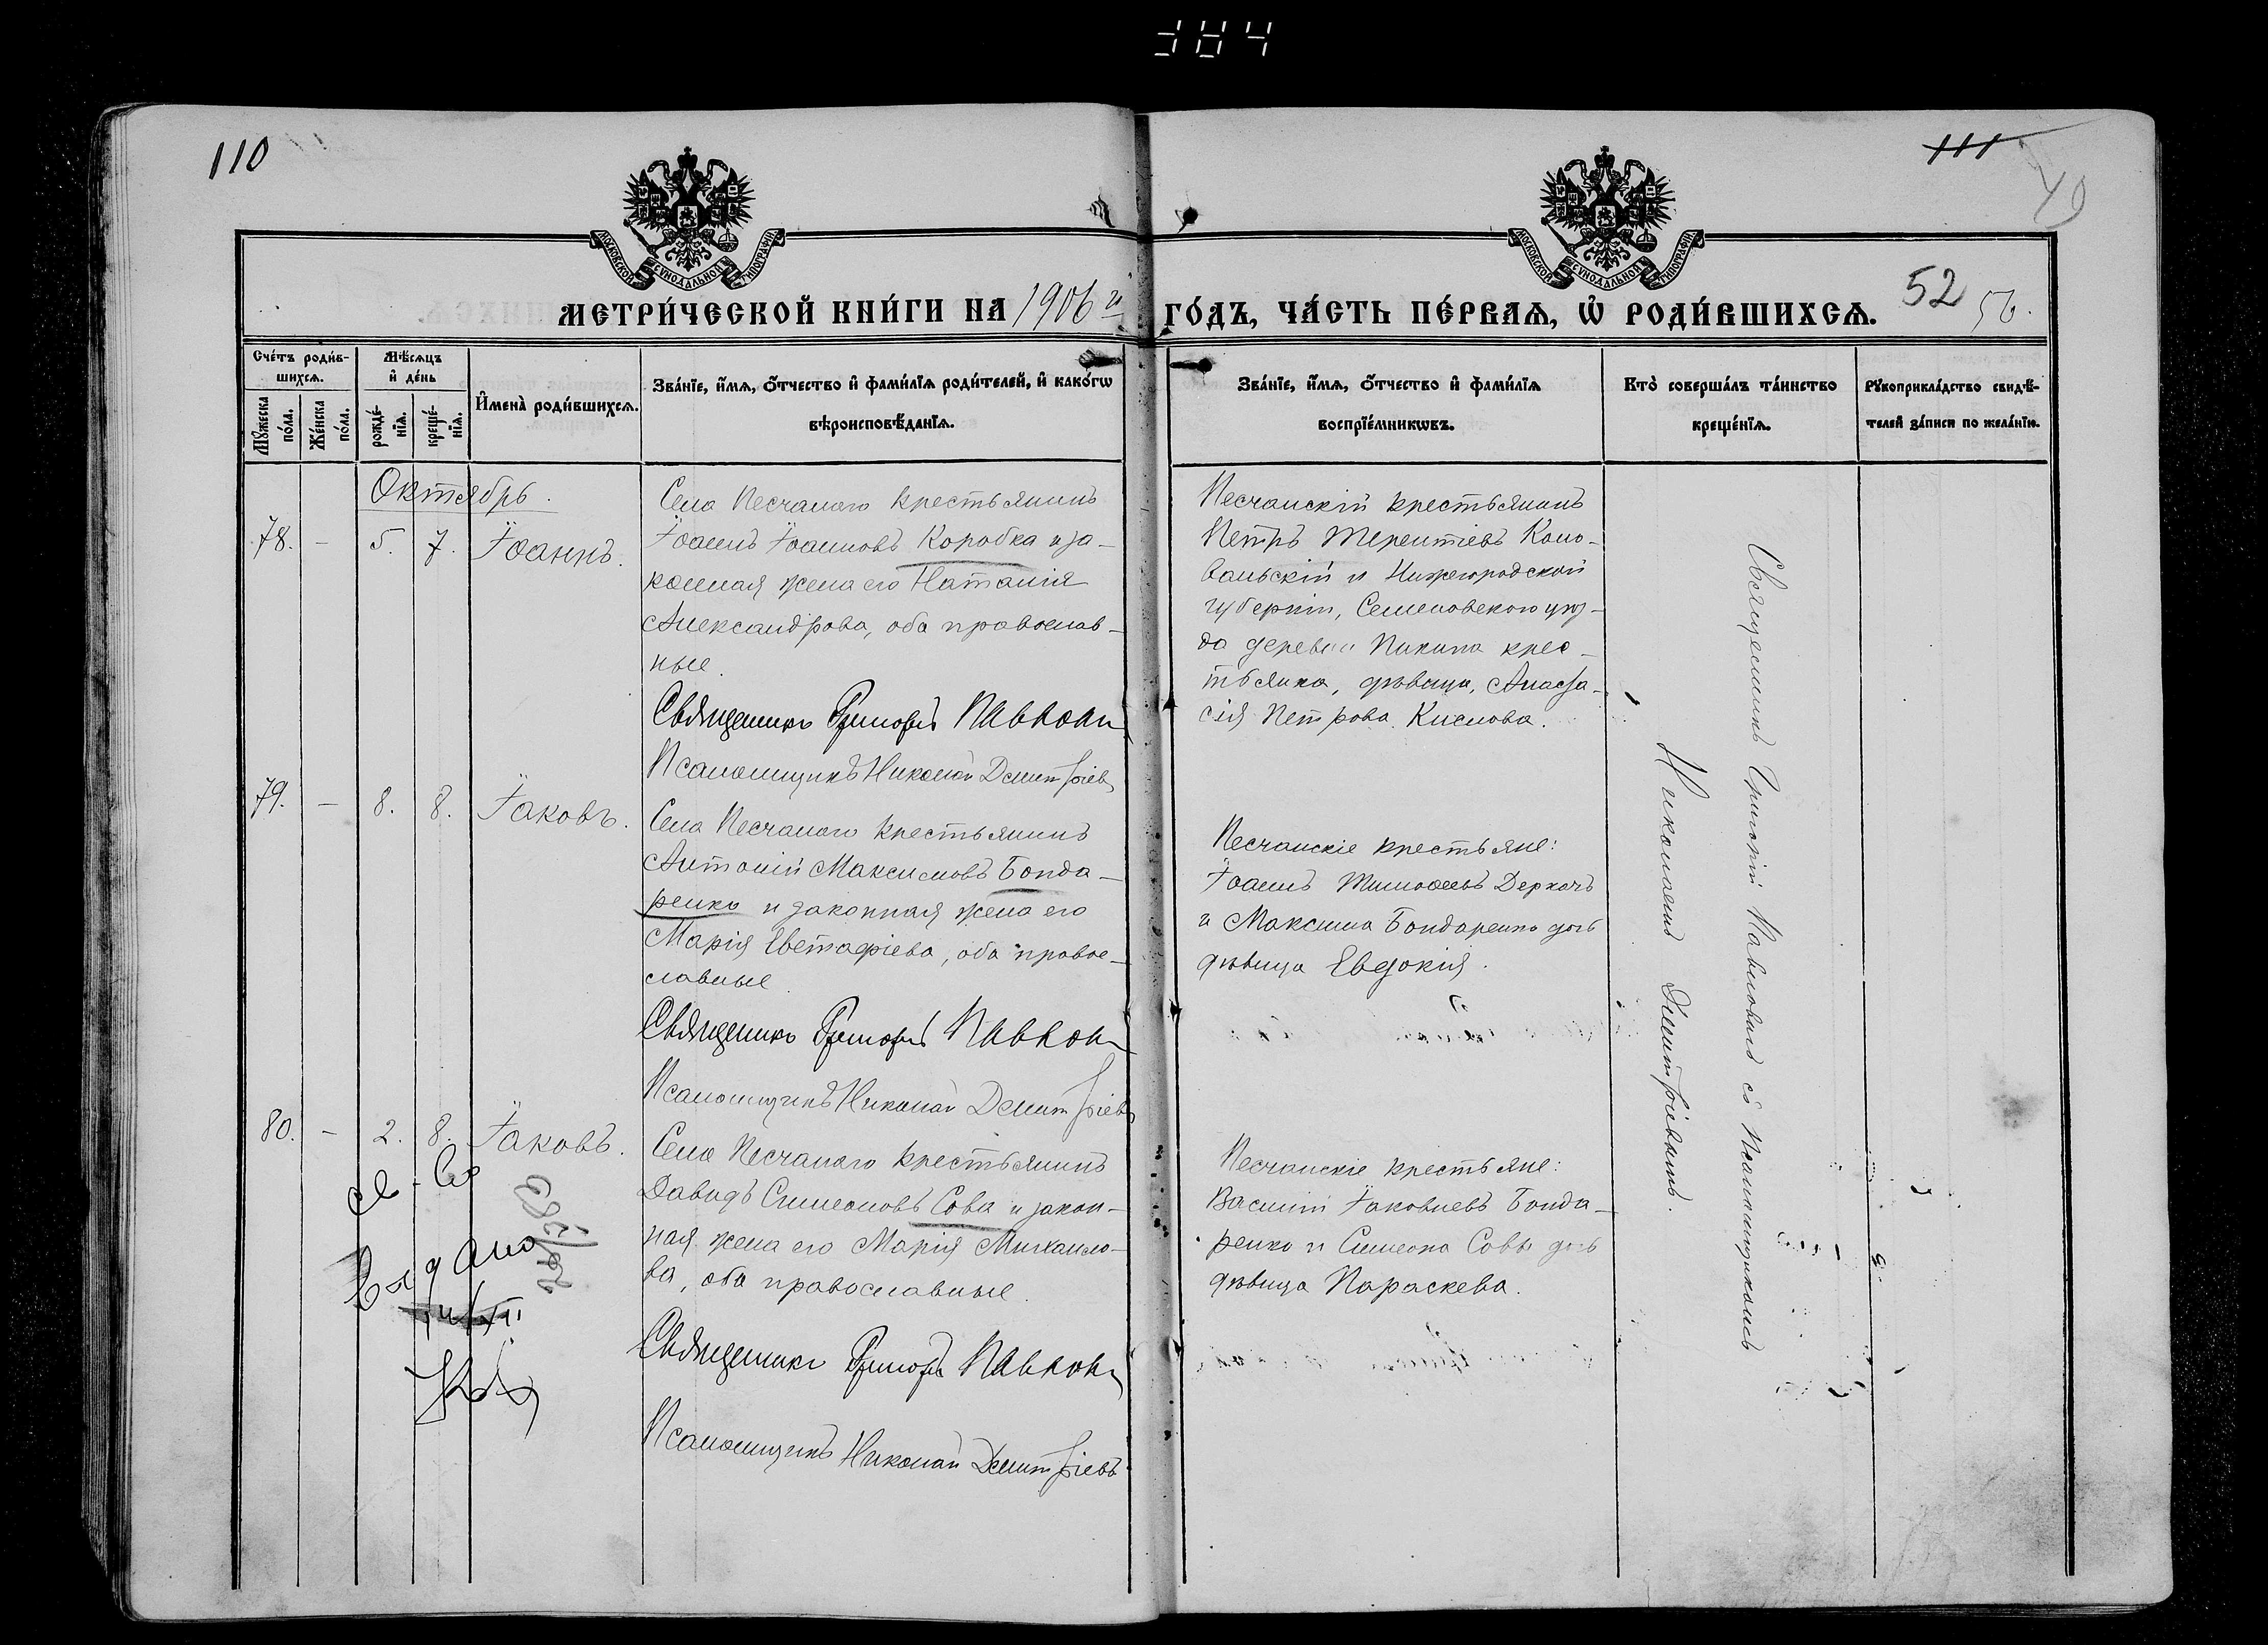 384
110
111
40
МОСКОВСКОЙ СѴНОДАЛЬНОЙ ТИПОГРАФІИ
МОСКОВСКОЙ СѴНОДАЛЬНОЙ ТИПОГРАФІИ
МЕТРИ́ЧЕСКОЙ КНИ́ГИ НА 1906й
ГО́ДЪ, ЧА́СТЬ ПЕ́РВАѦ, Ѡ РОДИ́ВШИХСѦ.
52
56.
Сче́тъ роди́в-
шихсѧ.
Мꙋжеска по́ла.
Же́нска по́ла.
Мѣ́сѧцъ
и҆ де́нь
рожде́-
нїѧ.
креще́-
нїѧ.
И҆мена̀ роди́вшихсѧ.
Зва́нїе, и҆́мѧ, ѻ҆́тчество и҆ фами́лїѧ роди́телей, и҆ како́гѡ
вѣроисповѣ́данїѧ.
Зва́нїе, и҆́мѧ, ѻ҆́тчество и҆ фами́лїѧ
воспрїе́мникѡвъ.
Кто̀ соверша́лъ та́инство
креще́нїѧ.
Рꙋкоприкла́дство свидѣ́-
телей за́писи по жела́нїю.
Октябрь.
78. - 5. 7. Іоаннъ.
Села Песчанаго крестьянинъ
Іоаннъ Іоанновъ Коробка и за-
конная жена его Наталія
Александрова, оба православ-
ные.
Священникъ Григорій Павлов
Псаломщикъ Николай Димитріев
Песчанскій крестьянинъ
Петръ Терентіевъ Коно-
вальскій и Нижегородской
губерніи, Семеновского уѣз-
да деревни Пикина крес-
тьянка, дѣвица, Анаста-
сія Петрова Кислова.
79. - 8. 8. Іаковъ.
Села Песчанаго крестьянинъ
Антоній Максимовъ Бонда-
ренко и законная жена его
Марія Евстафіева, оба право-
славные.
Священникъ Григорій Павлов
Псаломщикъ Николай Димитріев
Песчанскіе крестьяне:
Іоаннъ Тимофеевъ Деркачъ
и Максима Бондаренко дочь
дѣвица Евдокія.
80. - 2. 8. Іаковъ.
Села Песчанаго крестьянинъ
Давидъ Симеоновъ Сова и закон-
ная жена его Марія Михаило-
ва, оба православные.
Священникъ Григорій Павлов
Псаломщикъ Николай Димитріевъ
Песчанскіе крестьяне:
Василій Іаковлевъ Бонда-
ренко и Симеона Совы дочь
дѣвица Параскева.
св-во
выдано
Священникъ Григорій Павловымъ съ Псаломщикомъ
Николаемъ Димитріевымъ.